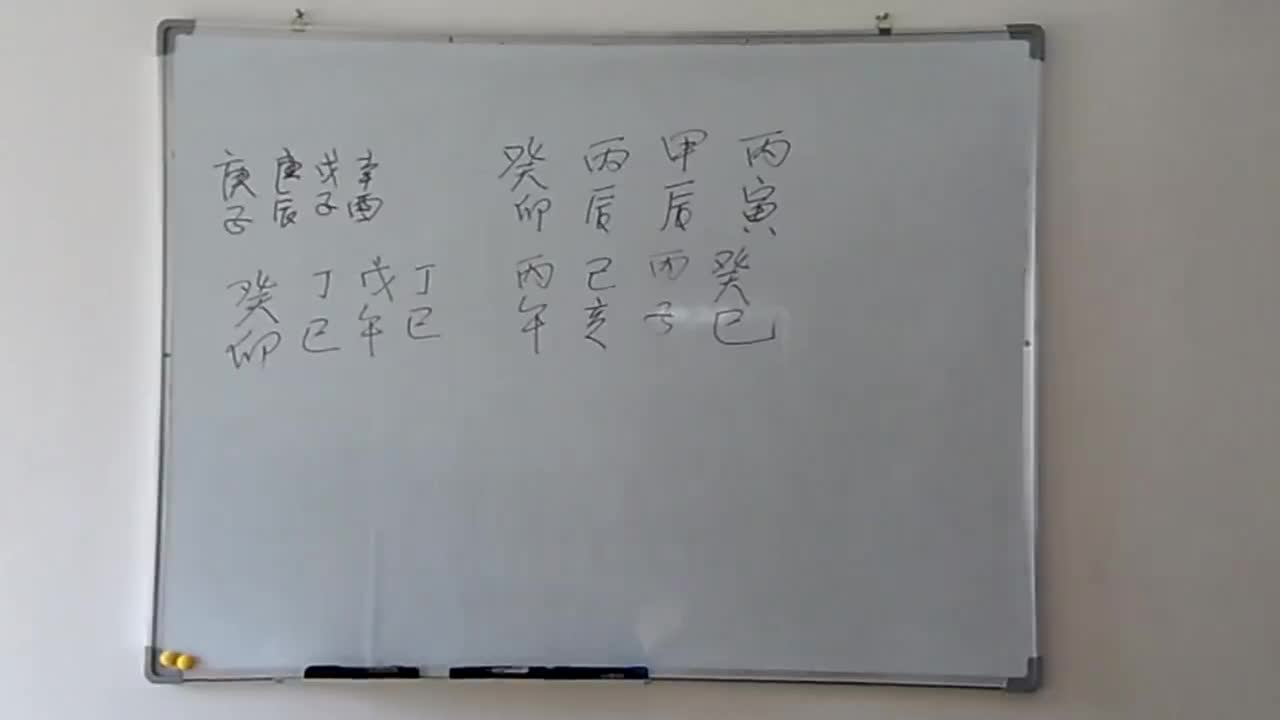 庚 庚 戊 辛
子 辰 子 酉
癸 丙 甲 丙
卯 辰 辰 寅
癸 丁 戊 丁
卯 巳 午 巳
丙 己 丙 癸
午 亥 子 巳